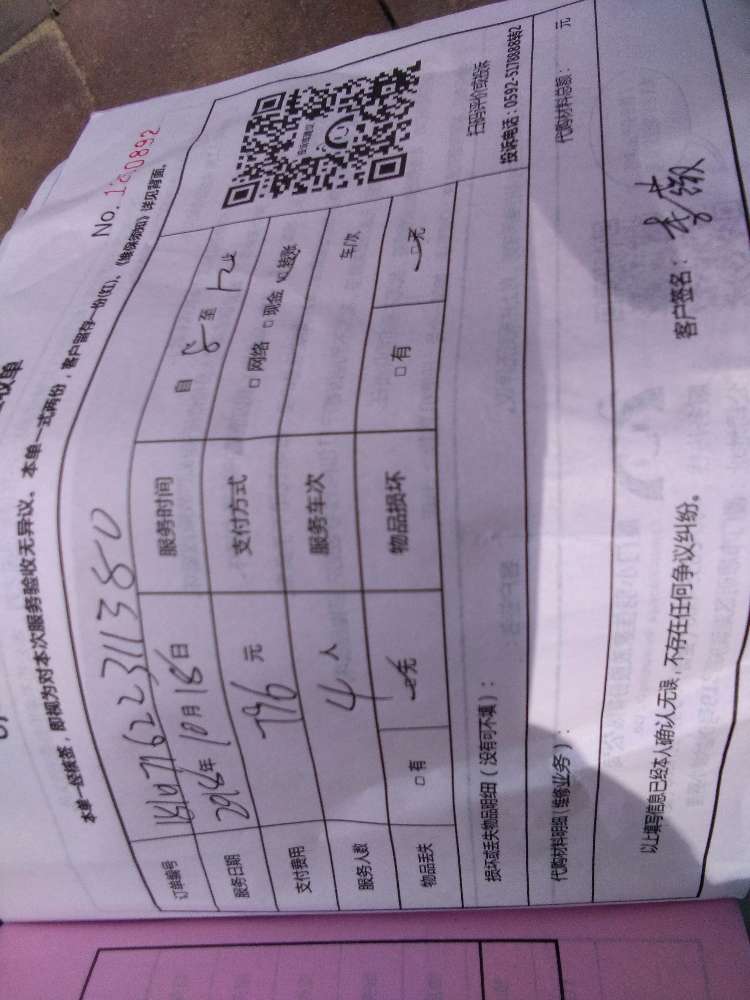 收单
No. 1200892
本单一经接签，即视为对本次服务验收无异议。本单一式两份，客户留存一份(红)，《维保须知》详见背面。
订单编号
服务日期 2018年10月18日 服务时间 自 8 至 12
支付费用 796 元 支付方式 □ 网络 □ 现金 转账
服务人数 4 人 服务车次 车/次
物品丢失 □ 有 无 物品损坏 □ 有 □ 无
扫码评价或投诉
投诉电话：0592-5178888转2
损坏或丢失物品明细（没有可不填）：
代购材料明细（维修业务）： 代购材料总额： 元
以上填写信息已经本人确认无误，不存在任何争议纠纷。
客户签名：